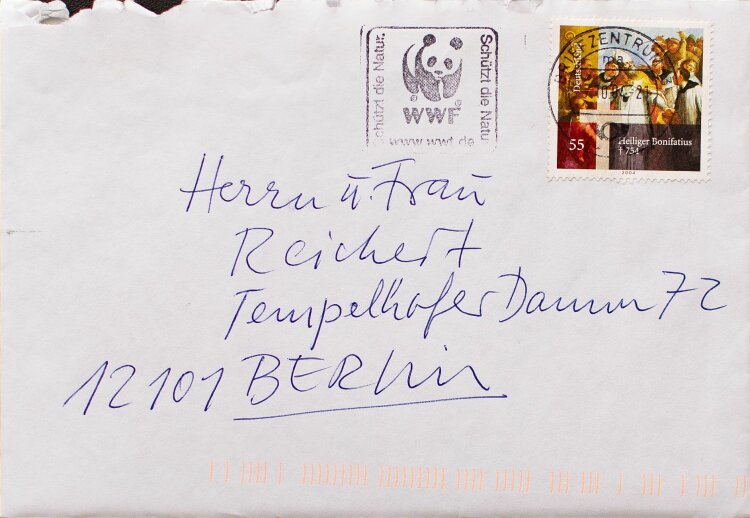 Schützt die Natur.
WWF
Schützt die Natu
www.wwf.de
BRIEFZENTRUM
Deutschland
55
Heiliger Bonifatius
† 754
2004
Herrn u. Frau
Reichert
Tempelhofer Damm 72
12101 BERlin